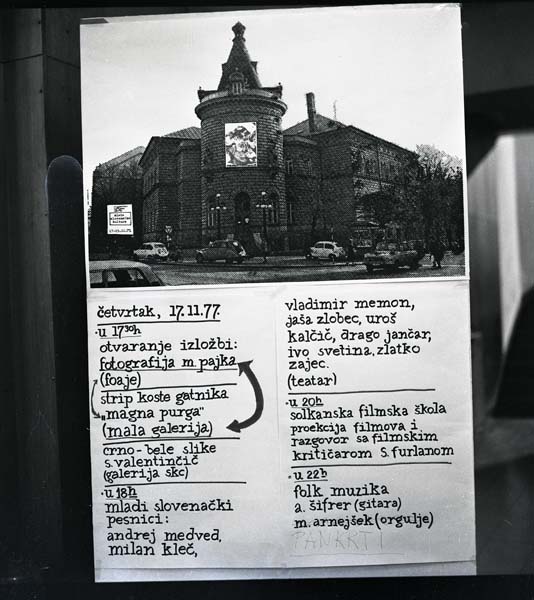 četvrtak, 17.11.77.
·u 17³⁰h
otvaranje izložbi:
fotografija m. pajka
(foaje)
strip koste gatnika
„magna purga"
(mala galerija)
crno-bele slike
s. valentinčič
(galerija skc)
·u 18h
mladi slovenački
pesnici:
andrej medved,
milan kleč,
vladimir memon,
jaša zlobec, uroš
kalčič, drago jančar,
ivo svetina, zlatko
zajec.
(teatar)
·u 20h
solkanska filmska škola
projekcija filmova i
razgovor sa filmskim
kritičarom S. furlanom
·u 22h
folk muzika
a. šifrer (gitara)
m. arnejšek (orgulje)
PANKRTI